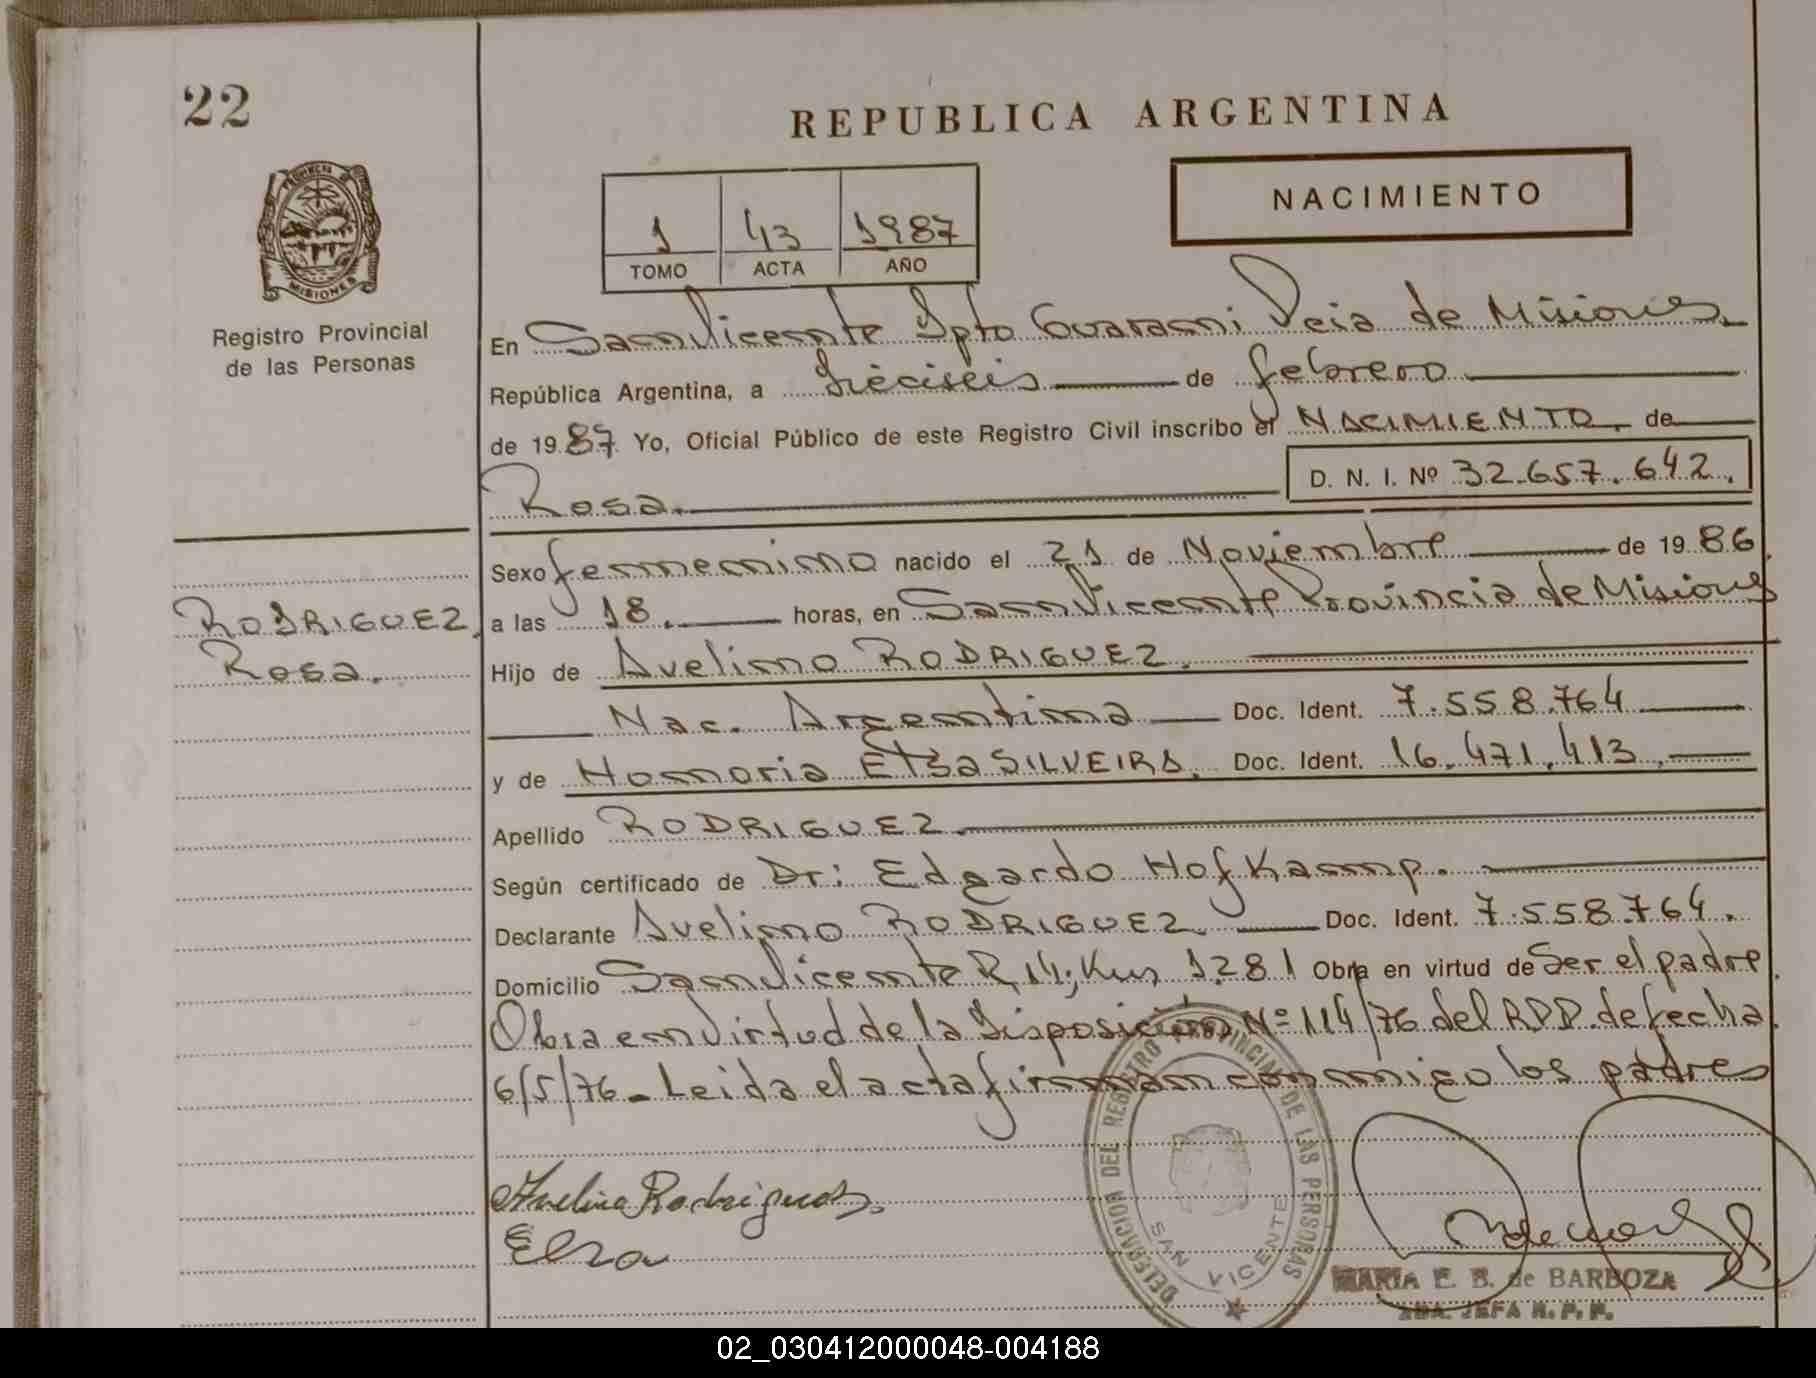 22
REPUBLICA ARGENTINA
PROVINCIA DE
MISIONES
Registro Provincial
de las Personas
1 43 1987
TOMO ACTA AÑO
NACIMIENTO
En San Vicente Dpto Guarani Pcia de Misiones
República Argentina, a Dieciseis de febrero
de 1987 Yo, Oficial Público de este Registro Civil inscribo el NACIMIENTO. de
Rosa. D. N. I. Nº 32.657.642.
Sexo femenino nacido el 21 de Noviembre de 1986.
RODRIGUEZ,
Rosa.
a las 18. horas, en San Vicente Provincia de Misiones
Hijo de Avelino RODRIGUEZ.
Nac. Argentina Doc. Ident. 7.558.764
y de Honoria Elsa SILVEIRA. Doc. Ident. 16.471.413.
Apellido RODRIGUEZ
Según certificado de Dr: Edgardo Hofkamp.
Declarante Avelino RODRIGUEZ. Doc. Ident. 7.558.764.
Domicilio San Vicente R.14; Km 1281 Obra en virtud de Ser el padre.
Obra en virtud de la Disposición Nº 114/76 del RPP. de fecha
6/5/76 - Leida el acta firman conmigo los padres
Avelino Rodriguez.
Elsa
DELEGACION DEL REGISTRO PROVINCIAL DE LAS PERSONAS
SAN VICENTE
MARIA E. B. de BARBOZA
2DA. JEFA R. P. P.
02_030412000048-004188